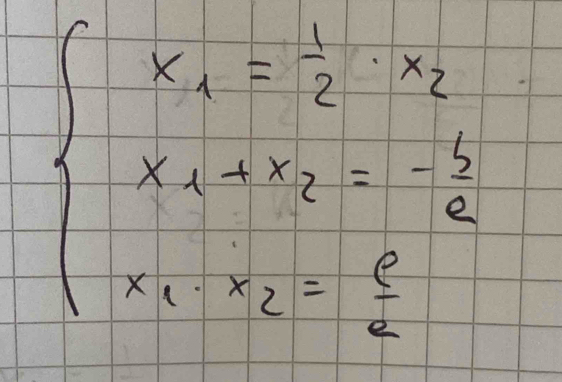 x₁ = 1/2 · x₂
x₁ + x₂ = -b/a
x₁ · x₂ = c/a